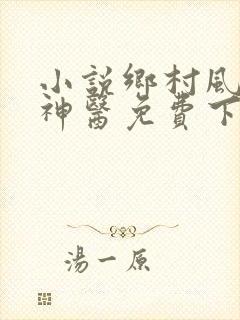 小説鄉村風
神醫免費下
湯一原